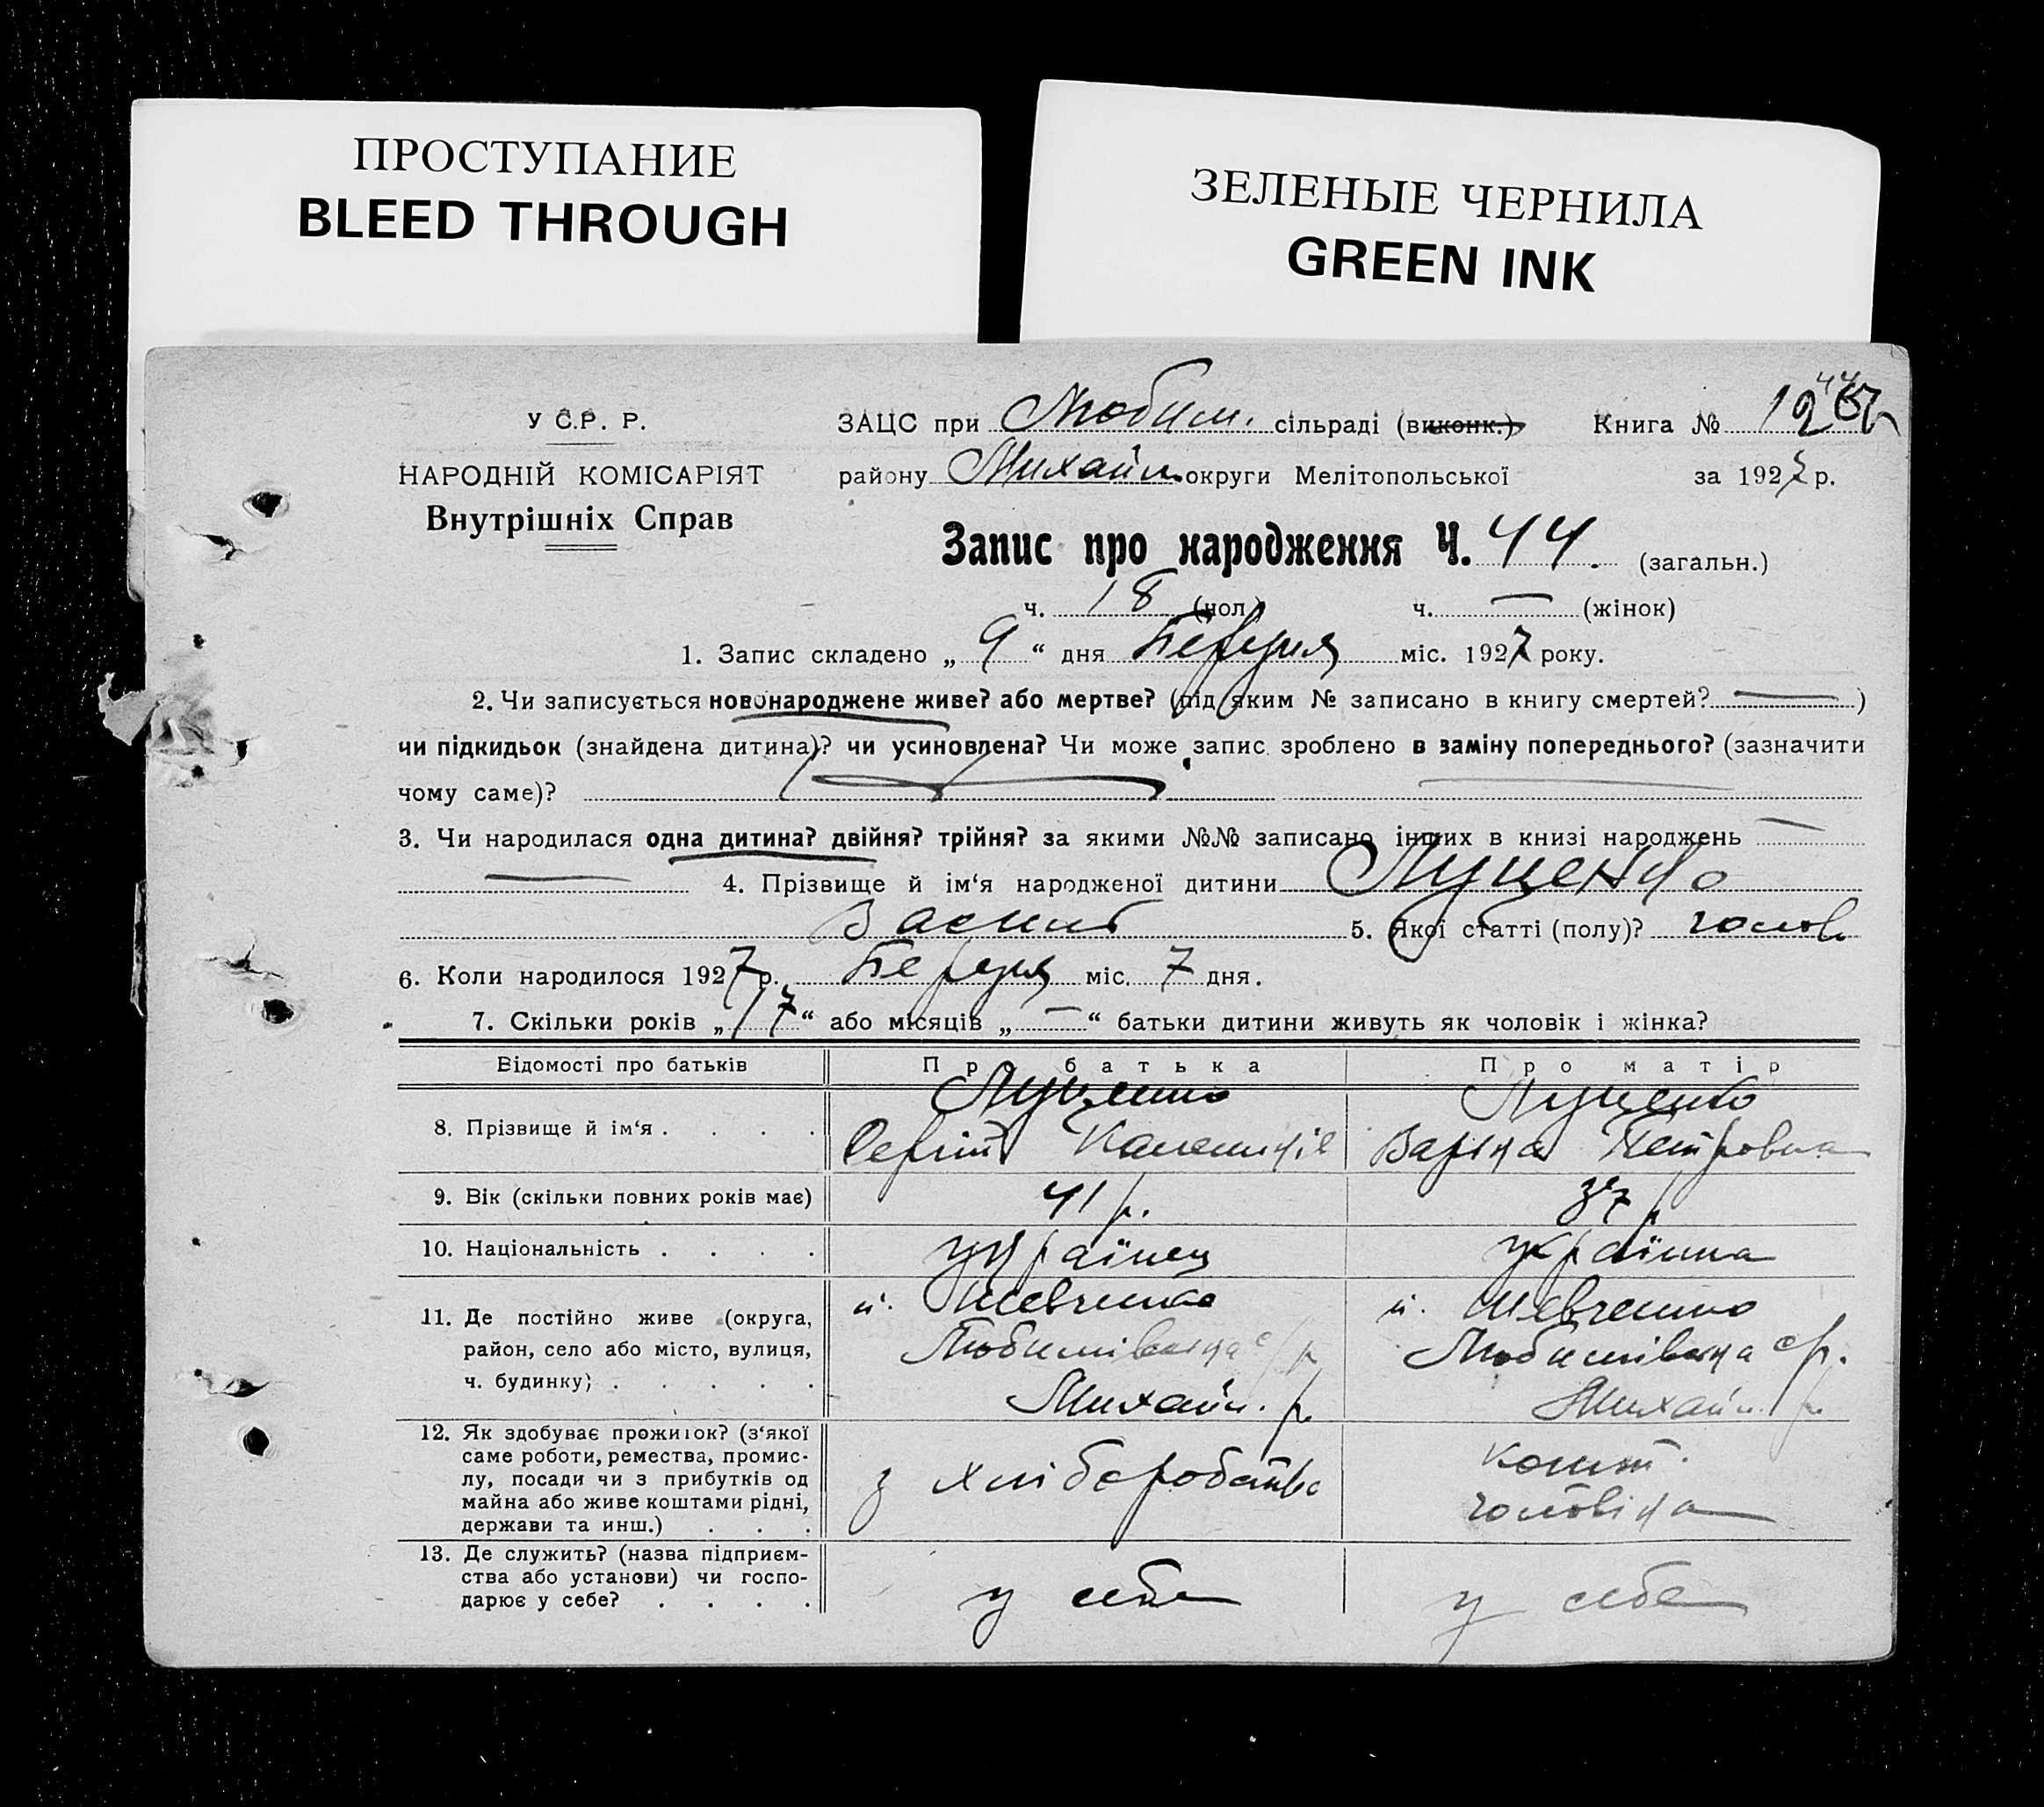 ПРОСТУПАНИЕ
BLEED THROUGH
ЗЕЛЕНЫЕ ЧЕРНИЛА
GREEN INK
У С.Р. Р.
НАРОДНІЙ КОМІСАРІЯТ
Внутрішніх Справ
ЗАЦС при Любим. сільраді (виконк.) Книга №
району Михайл округи Мелітопольської за 1927 р.
Запис про народження Ч. 44. (загальн.)
ч. 18 (чол.) ч. — (жінок)
1. Запис складено „ 9 “ дня Березня міс. 1927 року.
2. Чи записується новонароджене живе? або мертве? (під яким № записано в книгу смертей? — )
чи підкидьок (знайдена дитина)? чи усиновлена? Чи може запис зроблено в заміну попереднього? (зазначити
чому саме)?
3. Чи народилася одна дитина? двійня? трійня? за якими №№ записано інших в книзі народжень —
— 4. Прізвище й ім‘я народженої дитини Луценко
Василь 5. Якої статті (полу)? чолов
6. Коли народилося 1927 р. Березня міс. 7 дня.
7. Скільки років „ 17 “ або місяців „ — “ батьки дитини живуть як чоловік і жінка?
Відомості про батьків Про батька Про матір
8. Прізвище й ім‘я . . . . Луценко Луценко
Сергій Варка Петровна
9. Вік (скільки повних років має) 41 р. 37 р
10. Національність . . . . українец українка
11. Де постійно живе (округа, район, село або місто, вулиця, ч. будинку) . . . . . х. Шевченко х. Шевченко
Любимівська с/р Любимівська с/р.
Михайл. р. Михайл. р.
12. Як здобуває прожиток? (з‘якої
саме роботи, ремества, промис-
лу, посади чи з прибутків од
майна або живе коштами рідні,
держави та инш.) . . .
з хліборобства
кошт.
чоловіка
13. Де служить? (назва підприєм-
ства або установи) чи госпо-
дарює у себе? . . . .
у себе у себе